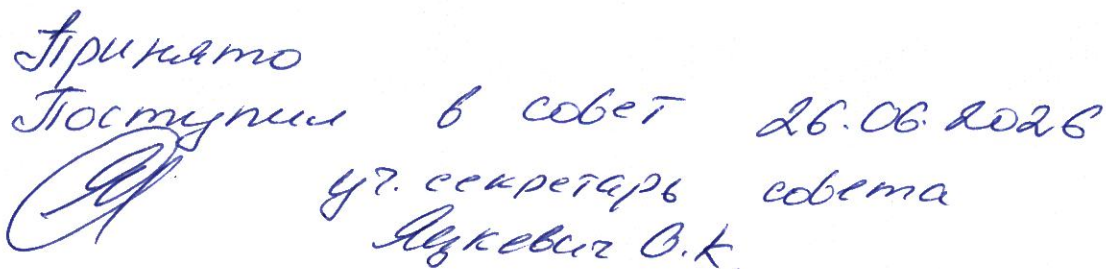 Принято
Поступил в совет 26.06.2026
уч. секретарь совета
Яцкевич О.К